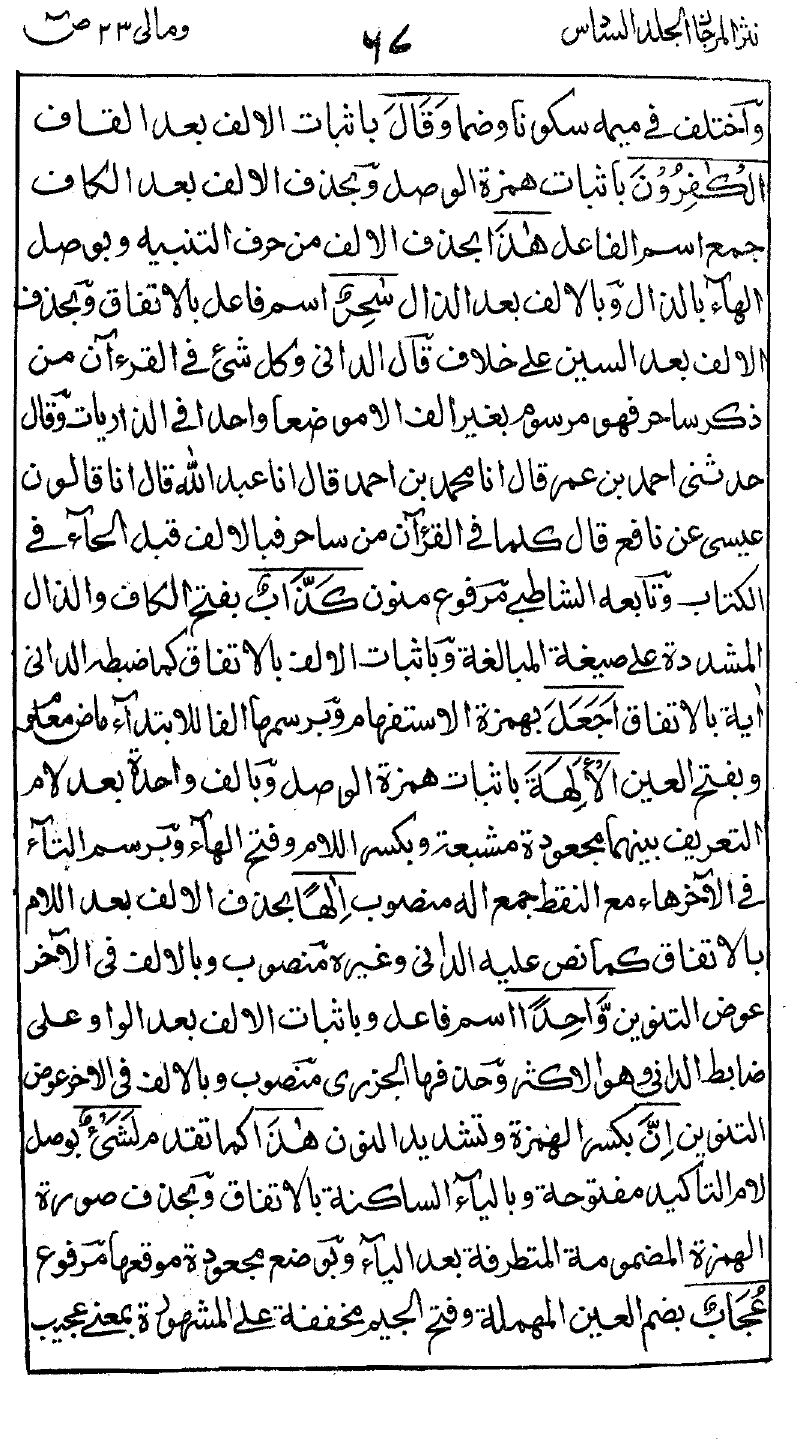 نثر المرجان الجلد السادس ٦٧ ومالی ٢٣ صٓ
واختلف فی میمه سکونا وضما وَقَالَ باثبات الالف بعد القاف
الْکٰفِرُوْنَ باثبات همزة الوصل وّبحذف الالف بعد الکاف
جمع اسم الفاعل هٰذَا بحذف الالف من حرف التنبیه وبوصل
الهآء بالذال وّبالالف بعد الذال سٰحِرٌ اسم فاعل بالاتفاق وّبحذف
الالف بعد السین علی خلاف قآل الدانی وکل شئ فی القرءآن من
ذکر ساحر فهو مرسوم بغیر الف الا موضعا واحدا فی الذاریات وّقال
حدثنی احمد بن عمر قال انا محمد بن احمد قال انا عبد الله قال انا قالون
عیسی عن نافع قال کلما فی القرآن من ساحر فبالالف قبل الحآء فی
الکتاب وّتابعه الشاطبی مّرفوع منون کَذَّابٌ بفتح الکاف والذال
المشددة علی صیغة المبالغة وّباثبات الالف بالاتفاق کما ضبطه الدانی
اٰیة بالاتفاق اَجَعَلَ بهمزة الاستفهام وّبرسمها الفا للابتدآء ماض معلوم
وبفتح العین الْاٰلِهَةَ باثبات همزة الوصل وّبالف واحدة بعد لام
التعریف بینهما مجعودة مشبعة وبکسر اللام وفتح الهآء وّبرسم التآء
فی الآخر هاء مع النقط جمع اله منصوب اِلٰهًا بحذف الالف بعد اللام
بالاتفاق کما نص علیه الدانی وغیره مّنصوب وبالالف فی الآخر
عوض التنوین وَّاحِدًا اسم فاعل وباثبات الالف بعد الواو علی
ضابط الدانی وهو الاکثر وّحذفها الجزری مّنصوب وبالالف فی الاخر عوض
التنوین اِنَّ بکسر الهمزة وتشدید النون هٰذَا کما تقدم لَشَیْءٌ بوصل
لام التأکید مفتوحة وبالیآء الساکنة بالاتفاق وّبحذف صورة
الهمزة المضمومة المتطرفة بعد الیآء وّبوضع مجعودة موقعها مّرفوع
عُجَابٌ بضم العین المهملة وفتح الجیم مخففة علی المشهورة بمعنی عجیب